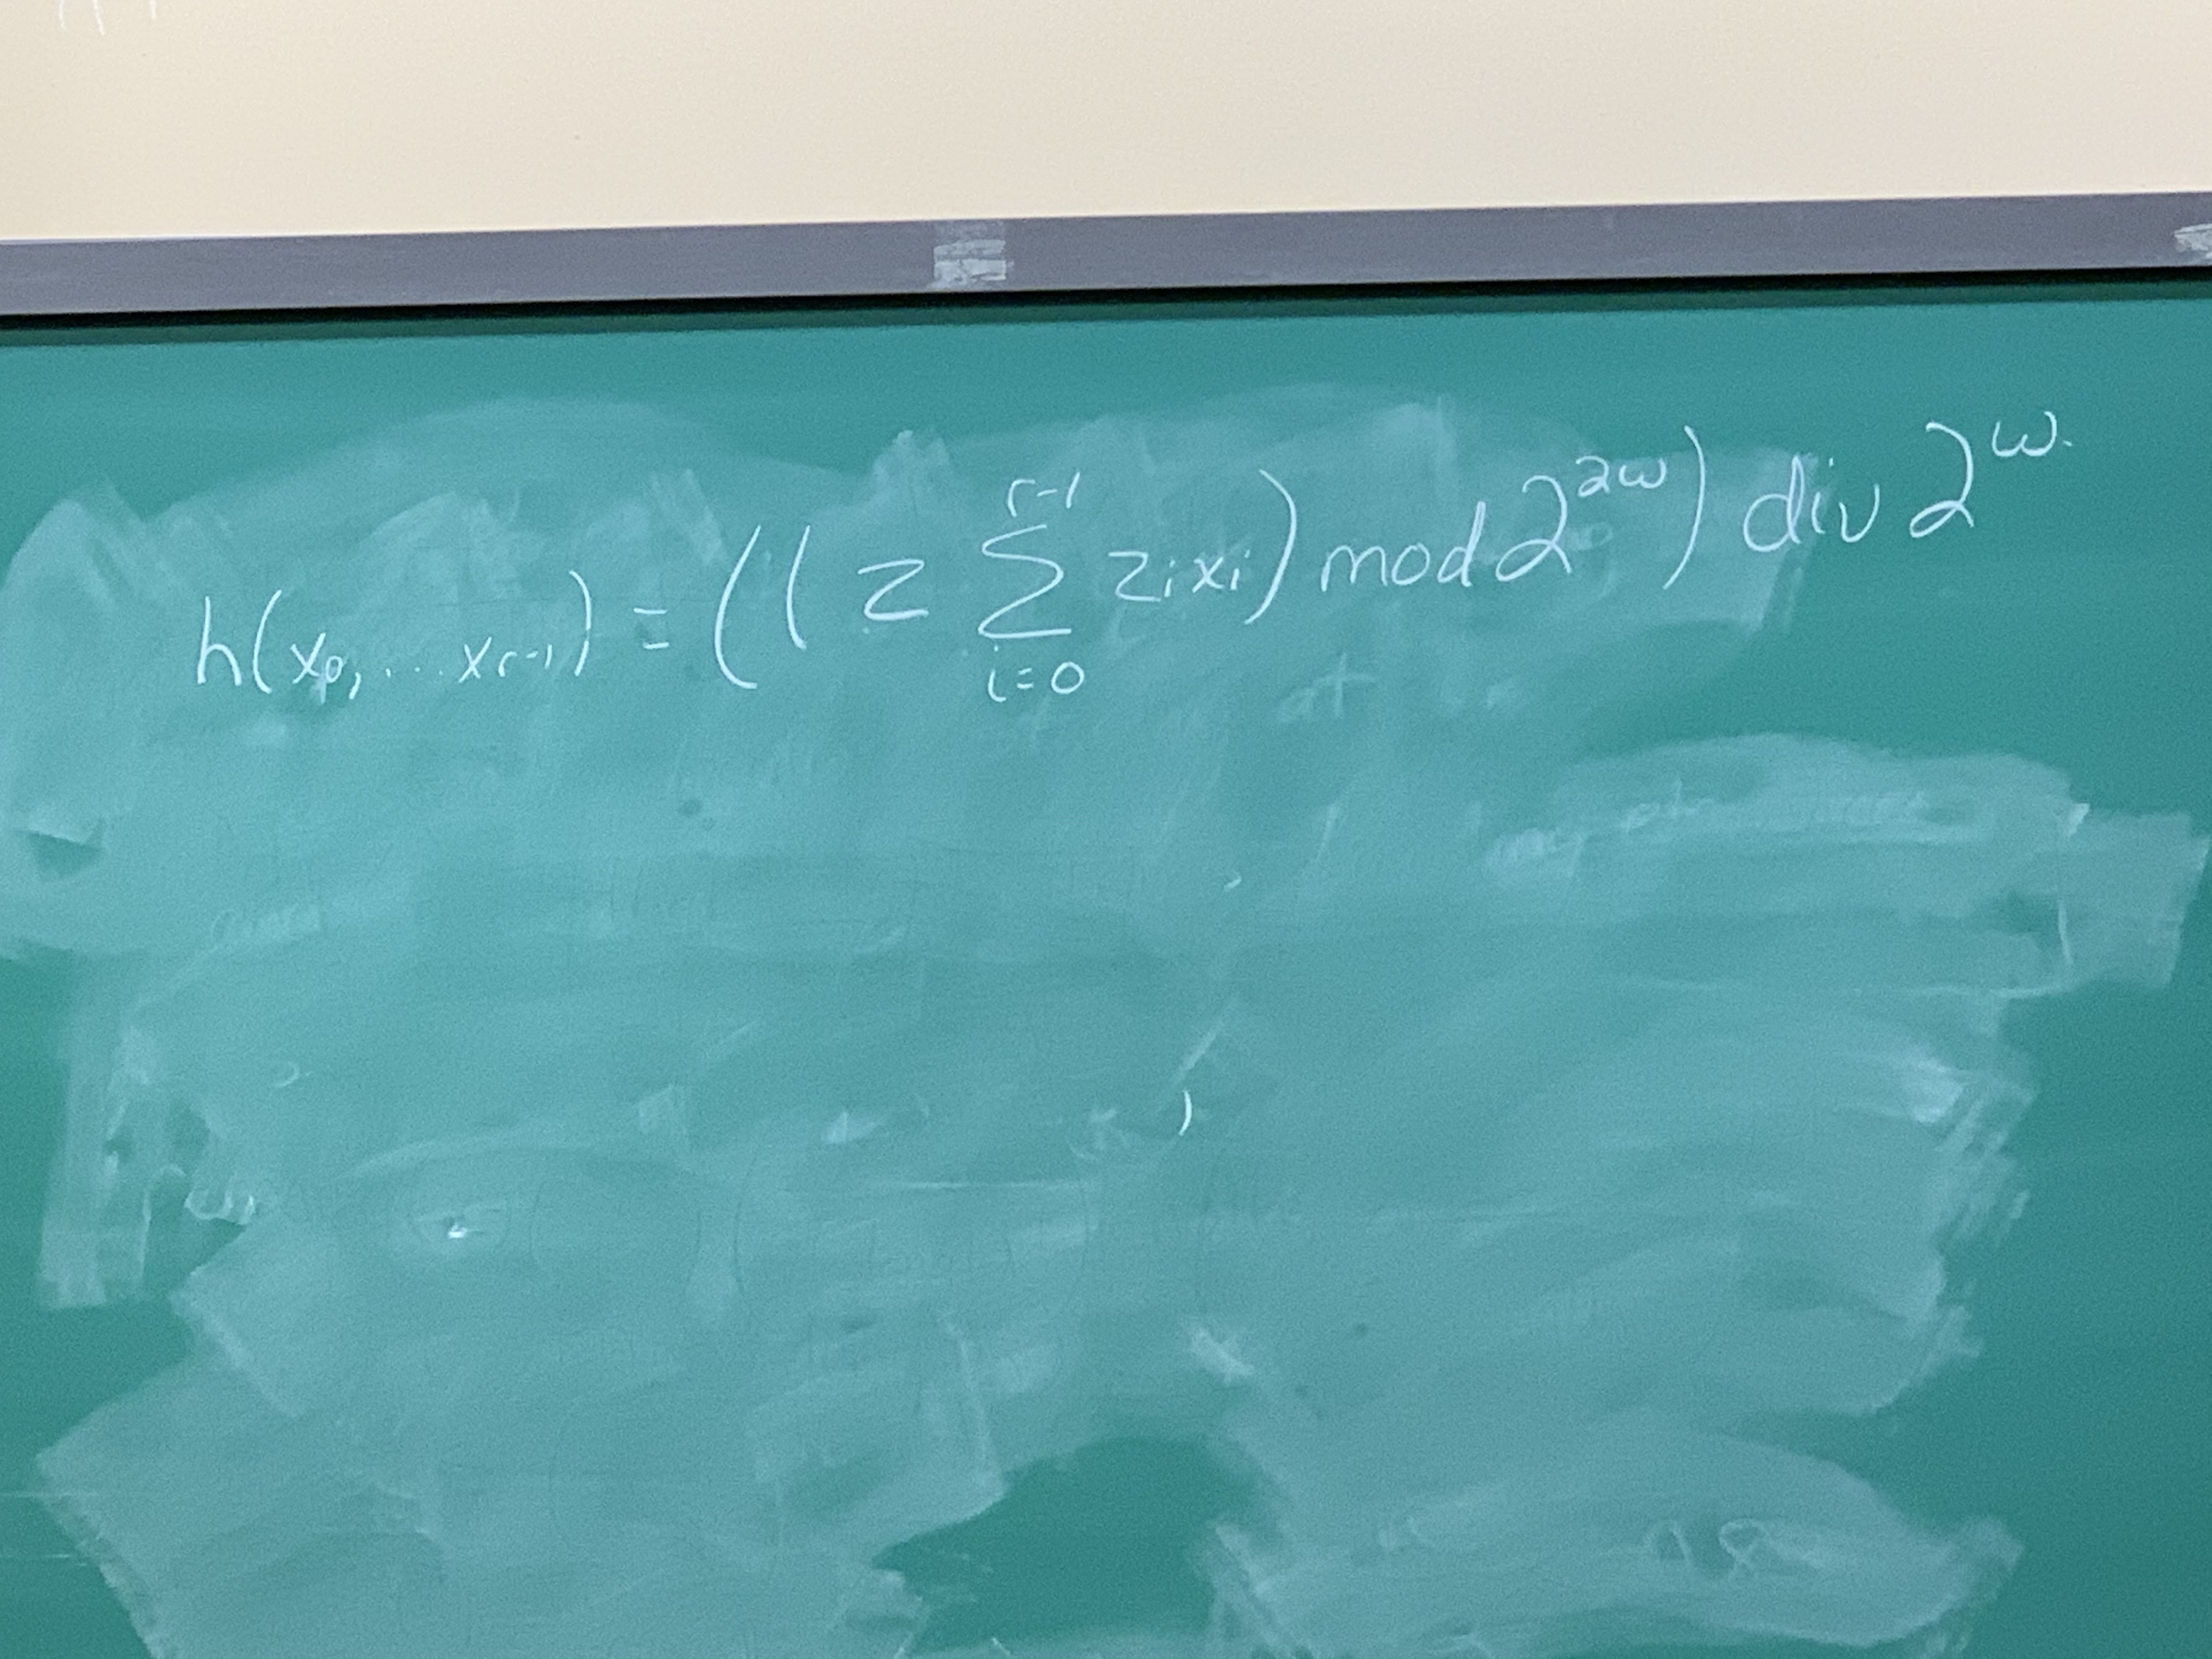 h(x₀, ... xᵣ₋₁) = ((z ∑_{i=0}^{r-1} zᵢxᵢ) mod 2^{2ω}) div 2^ω.